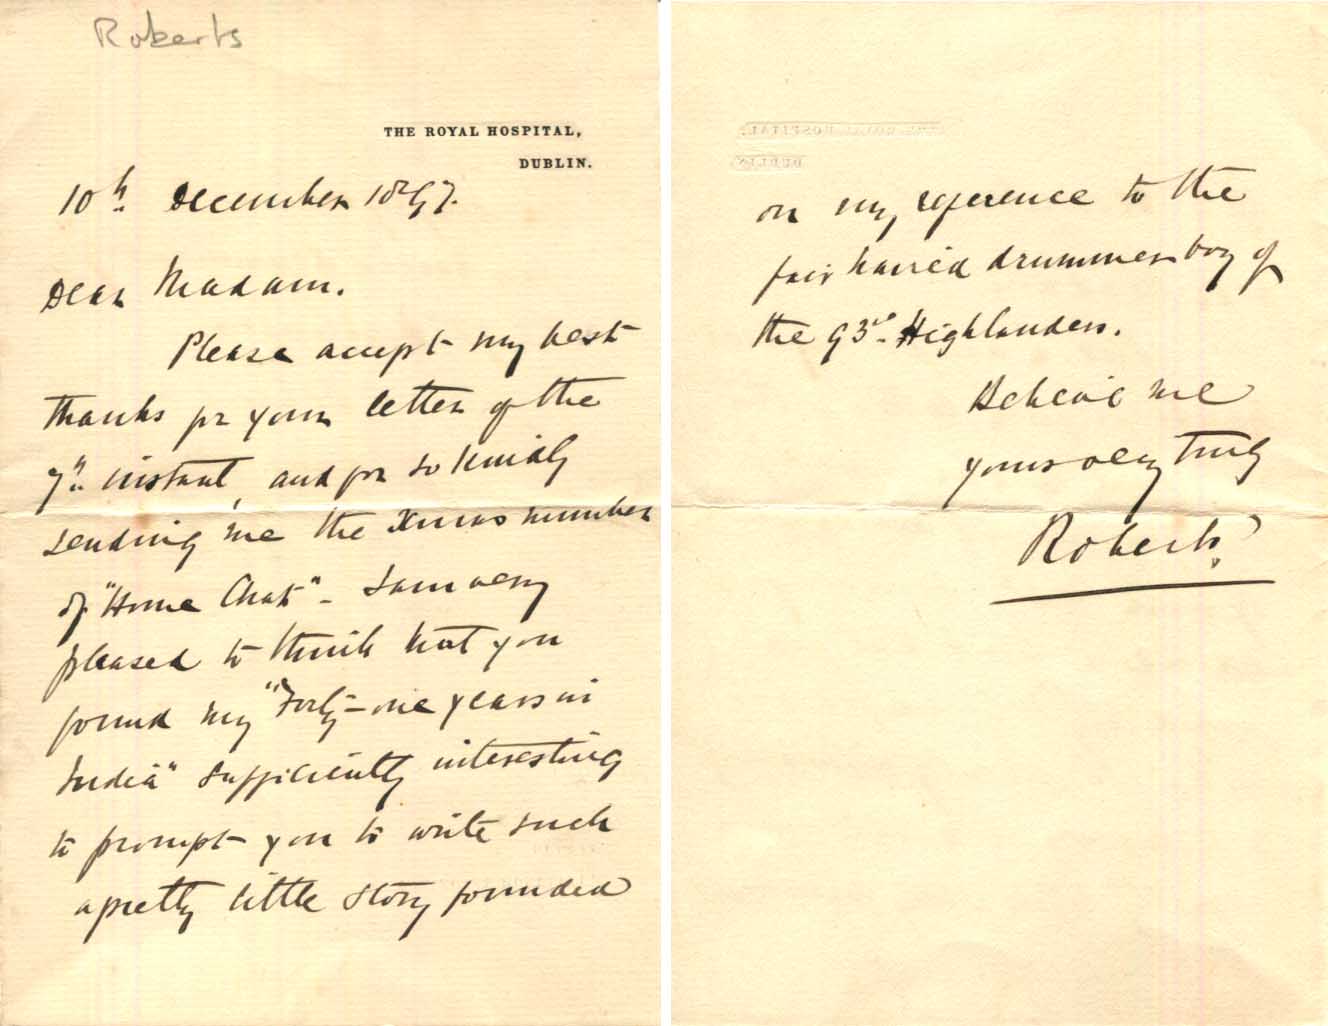 Roberts
THE ROYAL HOSPITAL,
DUBLIN.
10th December 1897.
Dear Madam.
Please accept my best
thanks for your letter of the
7th instant, and for so kindly
sending me the Xmas number
of "Home Chat" - I am very
pleased to think that you
found my "Forty-one years in
India" sufficiently interesting
to prompt you to write such
a pretty little story founded
on my reference to the
fair haired drummer boy of
the 93rd Highlanders.
Believe me
yours very truly
Roberts